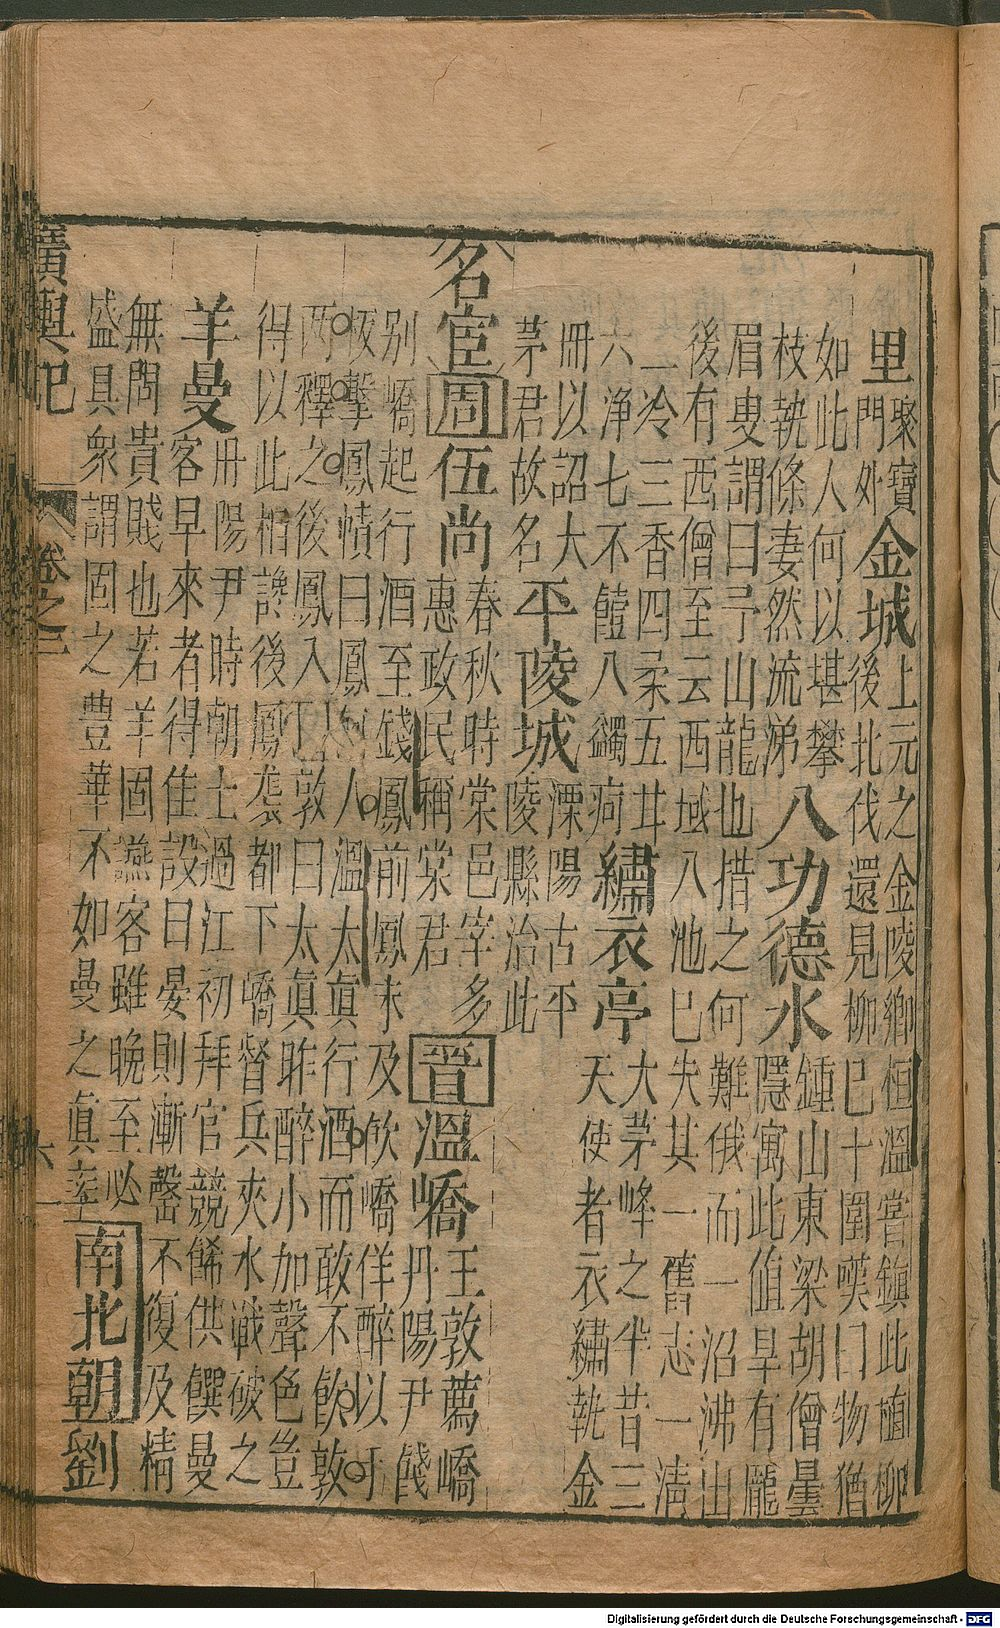 里聚寶門外金城上元之金陵鄉桓溫嘗鎮此植柳後北伐還見柳已十圍嘆曰物猶
如此人何以堪攀枝執條妻然流涕八功德水鍾山東梁胡僧曇隱寓此值旱有龎
眉叟謂曰予山龍也措之何難俄而一沼沸出後有西僧至云西域八池已失其一舊志一清
二冷三香四柔五甘六浄七不饐八蠲疴繡衣亭大茅峰之半昔三天使者衣繡執金
冊以詔大茅君故名平陵城溧陽古平陵縣治此
名宦周伍尚春秋時棠邑宰多惠政民稱棠君晉溫嶠王敦薦嶠丹陽尹餞
别嶠起行酒至錢鳳前鳳未及飲嶠佯醉以手板擊鳳幘曰鳳何人溫太真行酒而敢不飲敦
两釋之後鳳入敦曰太真昨醉小加聲色豈得以此相讒後鳳襲都下嶠督兵夾水戰破之
羊曼丹陽尹時朝士過江初拜官競餙供饌曼客早來者得佳設曰晏則漸罄不復及精
無問貴賤也若羊固讌客雖晚至必盛具衆謂固之豐華不如曼之真率南北朝劉
廣輿記 卷之二 六
Digitalisierung gefördert durch die Deutsche Forschungsgemeinschaft - DFG